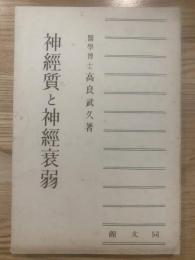 醫學博士 高良武久著
神經質と神經衰弱
同文館